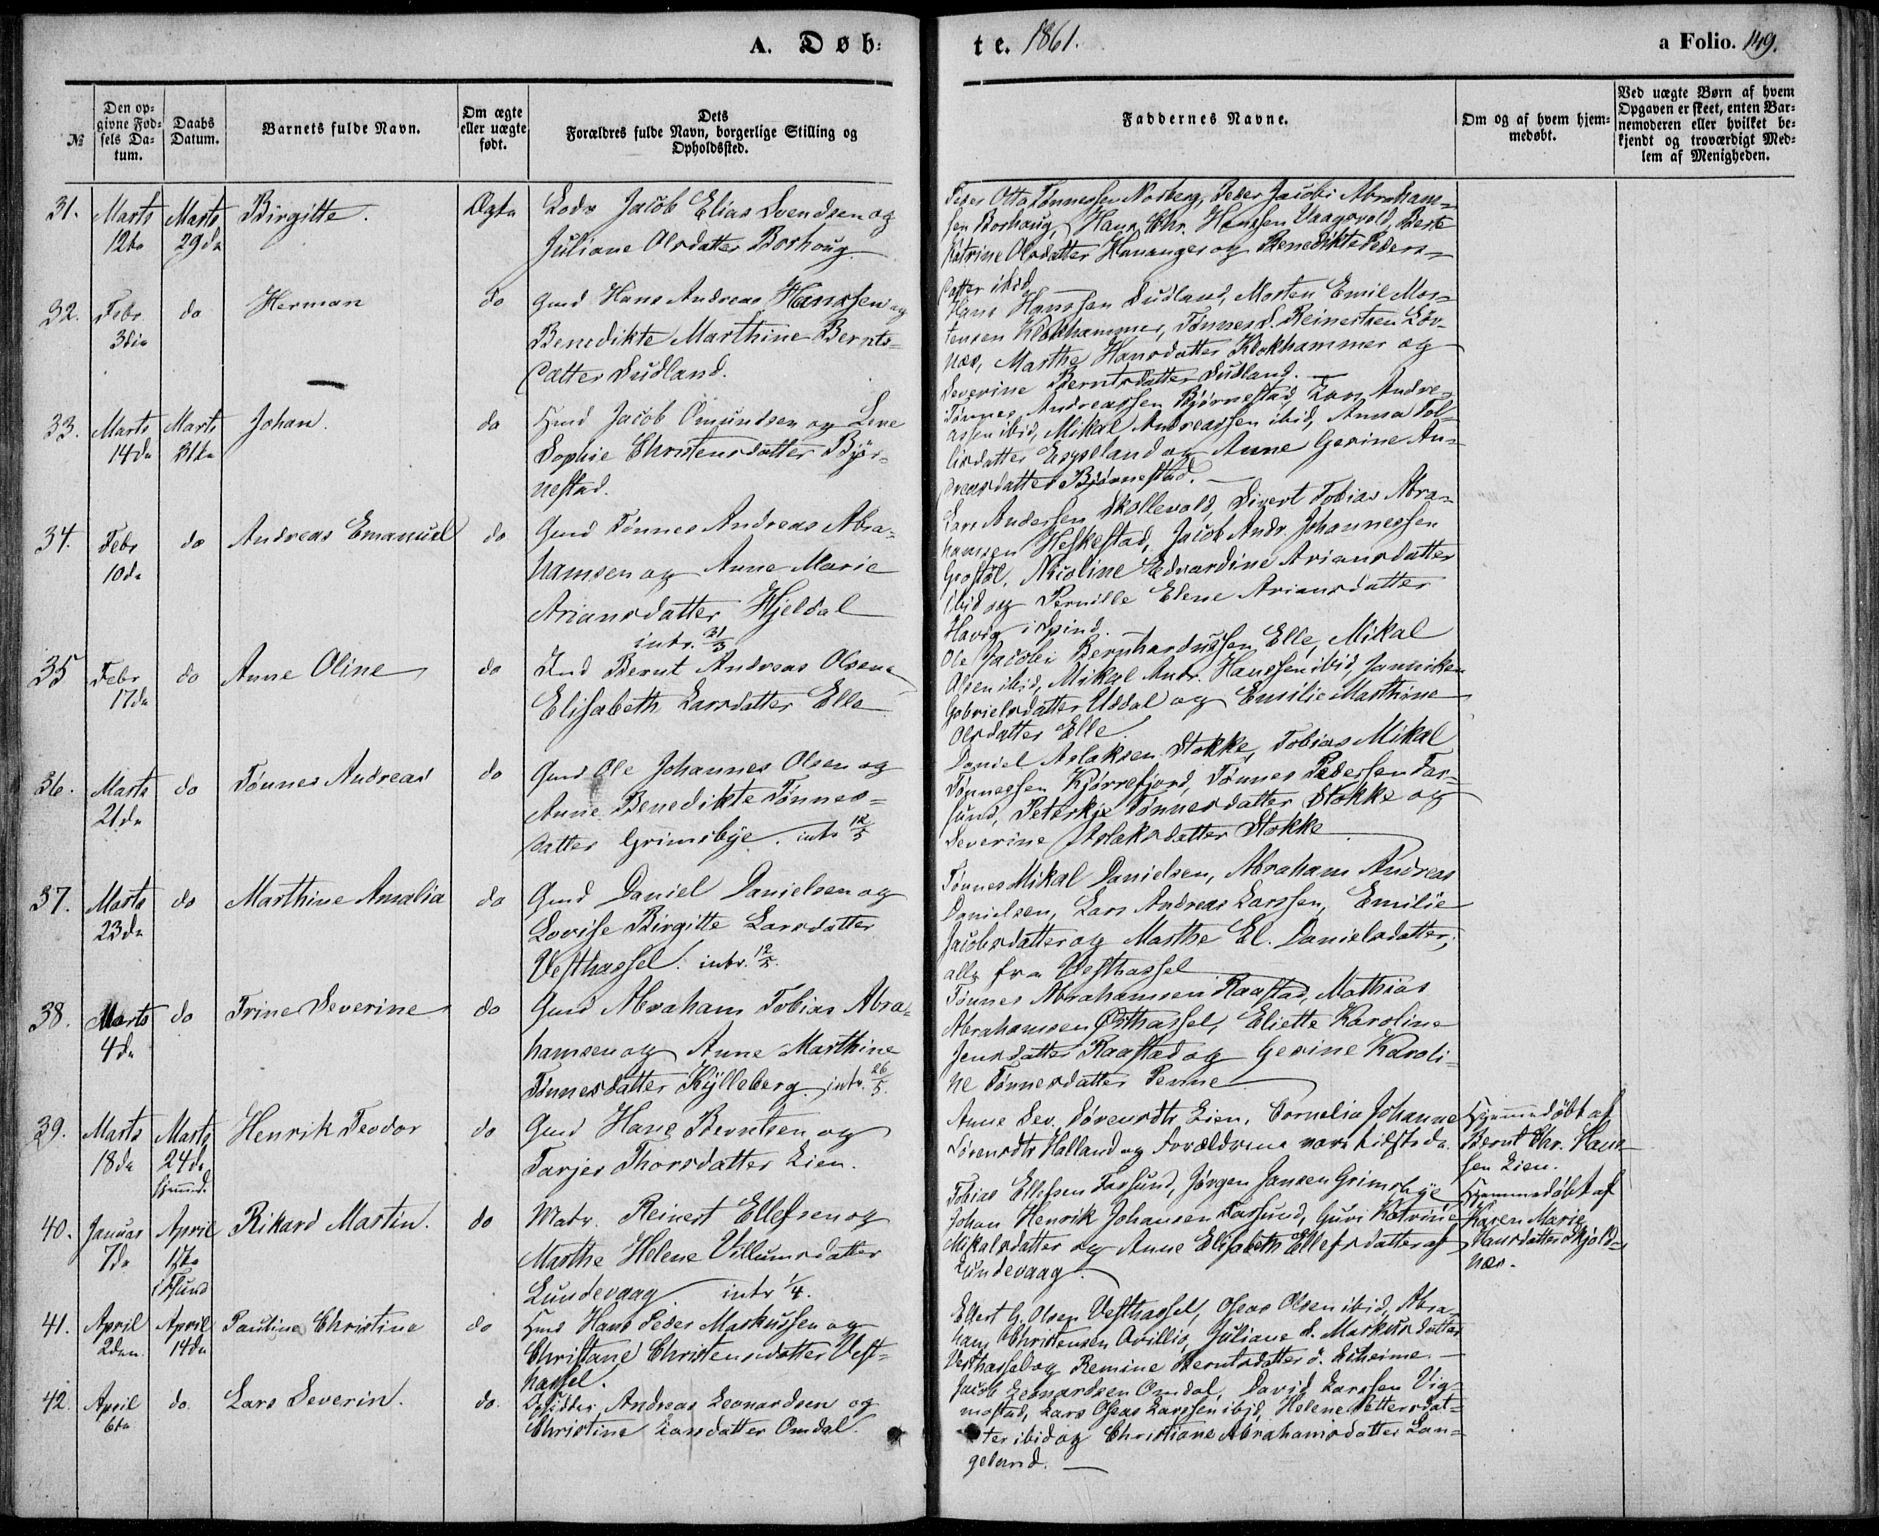 A. Døb-
te. 1861.
a Folio. 149.
№
Den op-
givne Fød-
sels Da-
tum.
Daabs
Datum.
Barnets fulde Navn.
Om ægte
eller uægte
født.
Dets
Forældres fulde Navn, borgerlige Stilling og
Opholdssted.
Faddernes Navne.
Om og af hvem hjem-
medøbt.
Ved uægte Børn af hvem
Opgaven er skeet, enten Bar-
nemoderen eller hvilket be-
kjendt og troværdigt Med-
lem af Menigheden.
31.
Marts
12te
Marts
29de
Birgitte.
Ægte
Lods Jacob Elias Svendsen og
Juliane Olsdatter Borhoug
Peder Otto Tønnessen Norberg, Peder Jacobi Abraham-
sen Borhaug, Hans Chr. Hansen Vaagsvold, Berte
Katrine Olsdatter Hananger og Benedikte Peders-
datter ibid.
32.
Febr
3die
do
Herman
do
Gmd Hans Andreas Hanssen og
Benedikte Marthine Bernts-
datter Sudland.
Hans Hanssen Sudland, Morten Emil Mor-
tensen Klokhammer, Tønnes S. Reinertsen Løv-
næs, Marthe Hansdatter Klokhammer og
Severine Berntsdatter Sudland.
33.
Marts
14de
Marts
31te
Johan.
do
Hmd Jacob Omundsen og Lene
Sophie Christensdatter Bjør-
nestad.
Tønnes Andreassen Bjørnestad, Lars Andre-
assen ibid, Mikal Andreassen ibid, Anna Tol-
lisdatter Eegeland og Anne Gesine An-
dreasdatter Bjørnestad.
34.
Febr
10de
do
Andreas Emanuel
do
Gmd Tønnes Andreas Abra-
hamsen og Anne Marie
Ariansdatter Hjeldal
intr. 31/3
Lars Andersen Skollevold, Sivert Tobias Abra-
hamsen Heskestad, Jacob Andr. Johannessen
Grostøl, Nicoline Edvardine Ariansdatter
ibid og Pernille Elene Ariansdatter
Havig i Spind.
35
Febr
17de
do
Anne Oline
do
Ind Bernt Andreas Olsen
Elisabeth Larsdatter Elle
Ole Jacobi Bernhardussen Elle, Mikal
Olsen ibid, Mikal Andr. Hanssen ibid, Janniken
Gabrielsdatter Uddal og Emilie Marthine
Olsdatter Elle
36.
Marts
21de
do
Tønnes Andreas
do
Gmd Ole Johannes Olsen og
Anne Benedikte Tønnes-
datter Grimsbye. intr 12/5
Daniel Aslaksen Stokke, Tobias Mikal
Tønnessen Kjørrefjord, Tønnes Pedersen Far-
sund, Peterkje Tønnesdatter Stokke og
Severine Aslaksdatter Stokke
37.
Marts
23de
do
Marthine Amalia
do
Gmd Daniel Danielsen og
Lovise Birgitte Larsdatter
Vesthassel. intr. 12/5.
Tønnes Mikal Danielsen, Abraham Andreas
Danielsen, Lars Andreas Larssen, Emilie
Jacobsdatter og Marthe El. Danielsdatter,
alle fra Vesthassel
38.
Marts
4de
do
Trine Severine
do
Gmd Abraham Tobias Abra-
hamsen og Anne Marthine
Tønnesdatter Hylleberg. intr. 26/5.
Tønnes Abrahamsen Raastad, Mathias
Abrahamsen Østhassel, Eliette Karoline
Jensdatter Raastad og Gesine Karoli-
ne Tønnesdatter Penne
39.
Marts
18de
Marts
24de
hjemmd.
Henrik Teodor
do
Gmd Hans Berntsen og
Tarjer Thorsdatter Lien.
Anne Sev. Sørensdtr Lien. Cornelia Johanne
Sørensdtr Halland og Forældrene vare tilstede
Hjemmedøbt af
Bernt Chr. Hans-
sen Lien.
40.
Januar
7de
April
17te
i Fsund
Rikard Martin.
do
Matr. Reinert Ellefsen og
Marthe Helene Villumsdatter
Lundevaag intr 1/4.
Tobias Ellefsen Farsund, Jørgen Jansen Grimsbye
Johan Henrik Johansen Farsund, Guri Katrine
Mikalsdatter og Anne Elisabeth Ellefsdatter af
Lundevaag.
Hjemmedøbt af
Karen Marie
Hansdatter Skjold-
næs.
41.
April
2den
April
14de
Pauline Christine
do
Hmd Hans Peder Markussen og
Christane Christensdatter Vest-
hassel.
Ellert G. Olsen Vesthassel, Oseas Olsen ibid, Abra-
ham Christensen Ovillie, Juliane S. Markusdatter
Vesthassel og Remine Berntsdatter
42.
April
6te
do
Lars Severin.
do.
Opsidder Andreas Leonardsen og
Christine Larsdatter Omdal.
Jacob Leonardsen Omdal, David Larssen Vig-
mostad, Lars Oseas Larssen ibid, Helene Pettersdat-
ter ibid og Christiane Abrahamsdatter Lan-
geland.